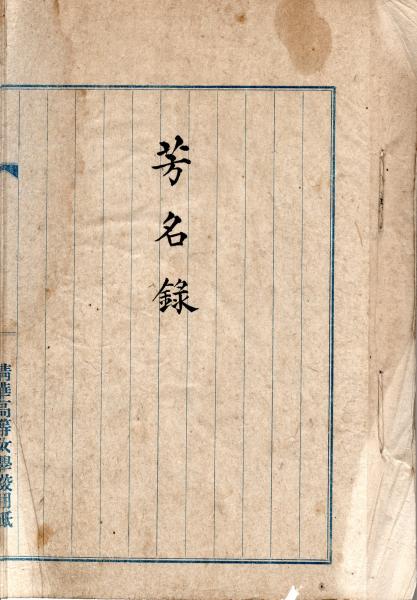 芳名錄
清華高等女學校用紙